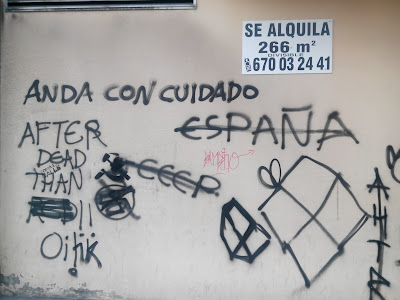 SE ALQUILA
266 m²
DIVISIBLE
670 03 24 41
ANDA CON CUIDADO
ESPAÑA
AFTER
DEAD
THAN
CCCP
Oitik